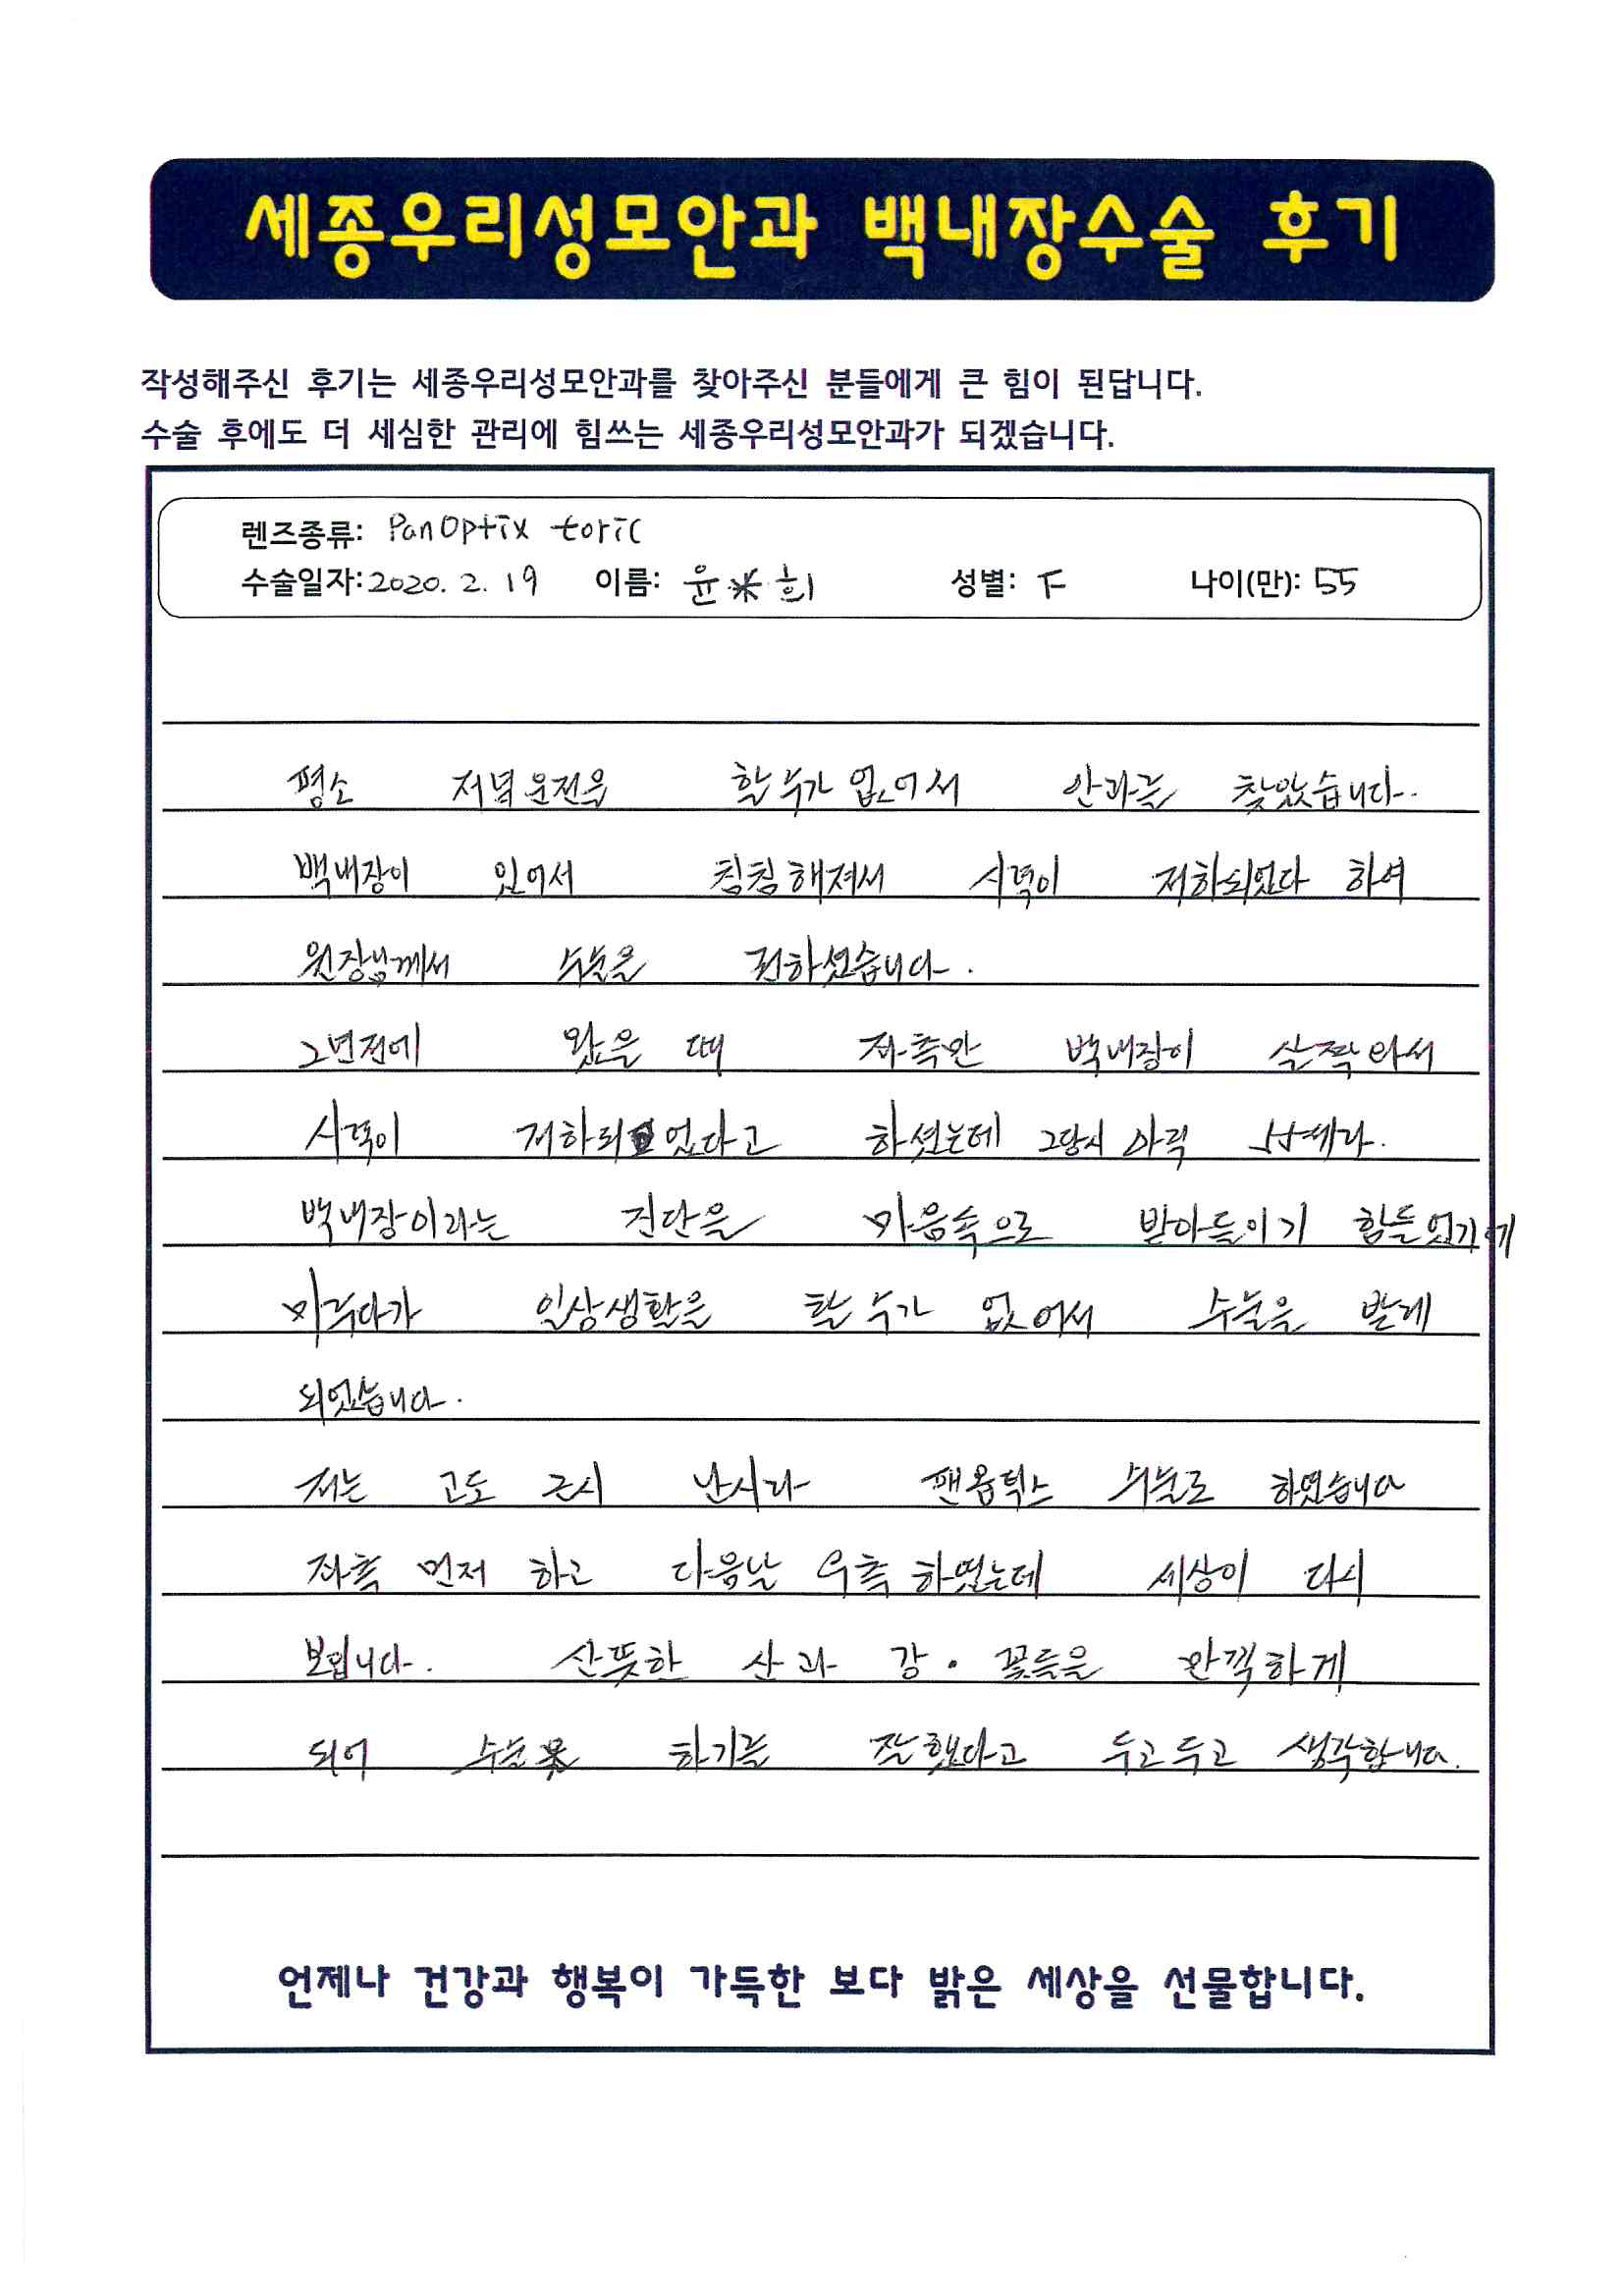 세종우리성모안과 백내장수술 후기
작성해주신 후기는 세종우리성모안과를 찾아주신 분들에게 큰 힘이 된답니다.
수술 후에도 더 세심한 관리에 힘쓰는 세종우리성모안과가 되겠습니다.
렌즈종류: PanOptix toric
수술일자: 2020. 2. 19 이름: 윤※희 성별: F 나이(만): 55
평소 저녁운전을 할수가 없어서 안과를 찾았습니다.
백내장이 있어서 침침해져서 시력이 저하되었다 하여
원장님께서 수술을 권하셨습니다.
2년전에 왔을 때 좌측안 백내장이 살짝와서
시력이 저하되었다고 하셨는데 그당시 아직 50대라
백내장이라는 진단을 마음속으로 받아들이기 힘들었기에
미루다가 일상생활을 할수가 없어서 수술을 받게
되었습니다.
저는 고도 근시 난시라 팬옵틱스 수술로 하였습니다
좌측 먼저 하고 다음날 우측 하였는데 세상이 다시
보입니다. 산뜻한 산과 강. 꽃들을 만끽하게
되어 수술 하기를 잘했다고 두고두고 생각합니다.
언제나 건강과 행복이 가득한 보다 밝은 세상을 선물합니다.